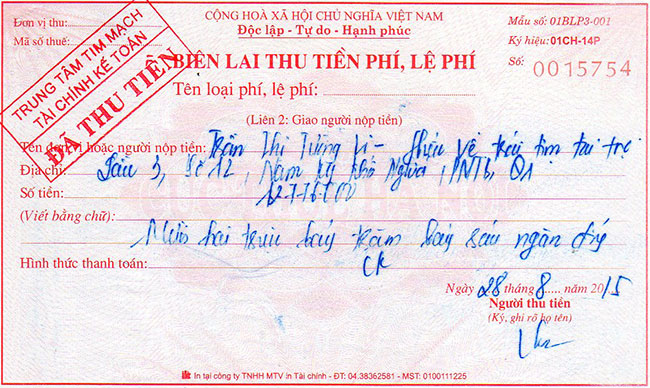 Đơn vị thu:
Mã số thuế:
TRUNG TÂM TIM MẠCH
TÀI CHÍNH KẾ TOÁN
ĐÃ THU TIỀN
CỘNG HOÀ XÃ HỘI CHỦ NGHĨA VIỆT NAM
Độc lập - Tự do - Hạnh phúc
Mẫu số: 01BLP3-001
Ký hiệu: 01CH-14P
Số: 0015754
BIÊN LAI THU TIỀN PHÍ, LỆ PHÍ
Tên loại phí, lệ phí:
(Liên 2: Giao người nộp tiền)
Tên đơn vị hoặc người nộp tiền: Trần Thị Tường Vi - trái tim tài trợ
Địa chỉ: Lầu 3, Số 12, Nam Kỳ Khởi Nghĩa, Q1
Số tiền: 12.776.000
(Viết bằng chữ):
Mười hai triệu bảy trăm bảy sáu ngàn
Hình thức thanh toán: CK
Ngày 28 tháng 8 năm 2015
Người thu tiền
(Ký, ghi rõ họ tên)
In tại công ty TNHH MTV in Tài chính - ĐT: 04.38362581 - MST: 0100111225